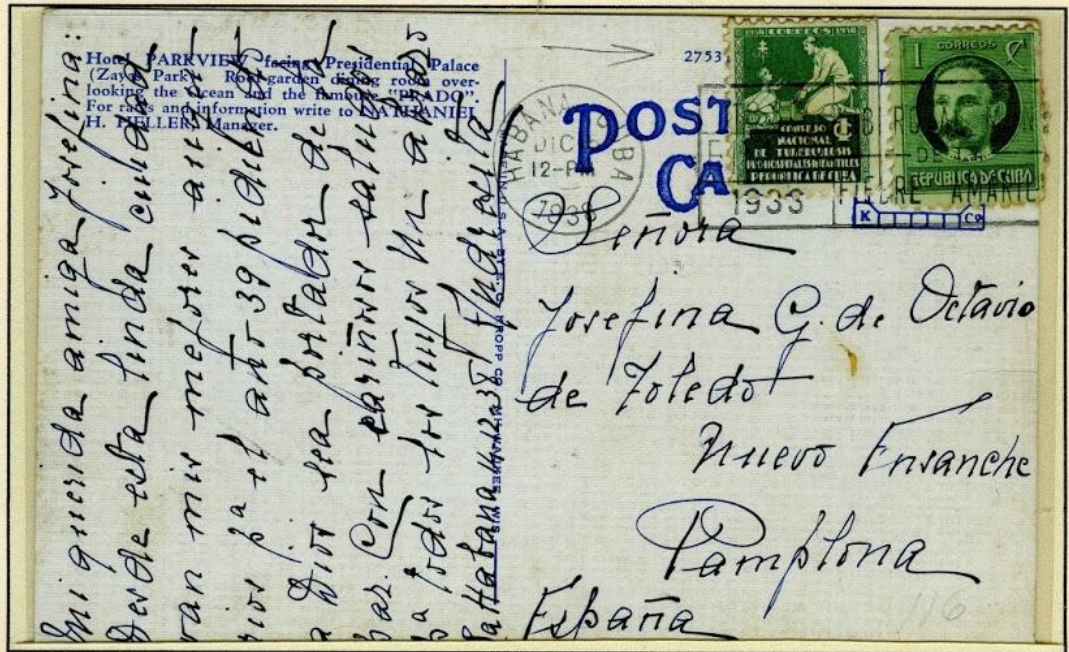 Hotel PARKVIEW facing Presidential Palace
(Zayas Park). Roof-garden dining room over-
looking the ocean and the famous "PRADO".
For rates and information write to NATHANIEL
H. HELLER, Manager.
2753
POST
CA
HABANA CUBA
DIC
12-PM
1938
CORREOS
CONSEJO
NACIONAL
DE TUBERCULOSIS
PRO-HOSPITALES INFANTILES
REPUBLICA DE CUBA
1C
1 CORREOS C
REPUBLICA DE CUBA
1933
DE LA
FIEBRE AMARIL
K Co
Mi querida amiga Josefina:
Desde esta linda ciudad
van mis mejores augu-
rios pa el año 39 pidiendo
a Dios sea portador de la
paz. Con cariñosos saludos
pa todos los tuyos un abrazo
La Habana 14.12.38
Señora
Josefina G. de Octavio
de Toledo
Nuevo Ensanche
Pamplona
España
116
KROPP CO. MILWAUKEE, WIS.